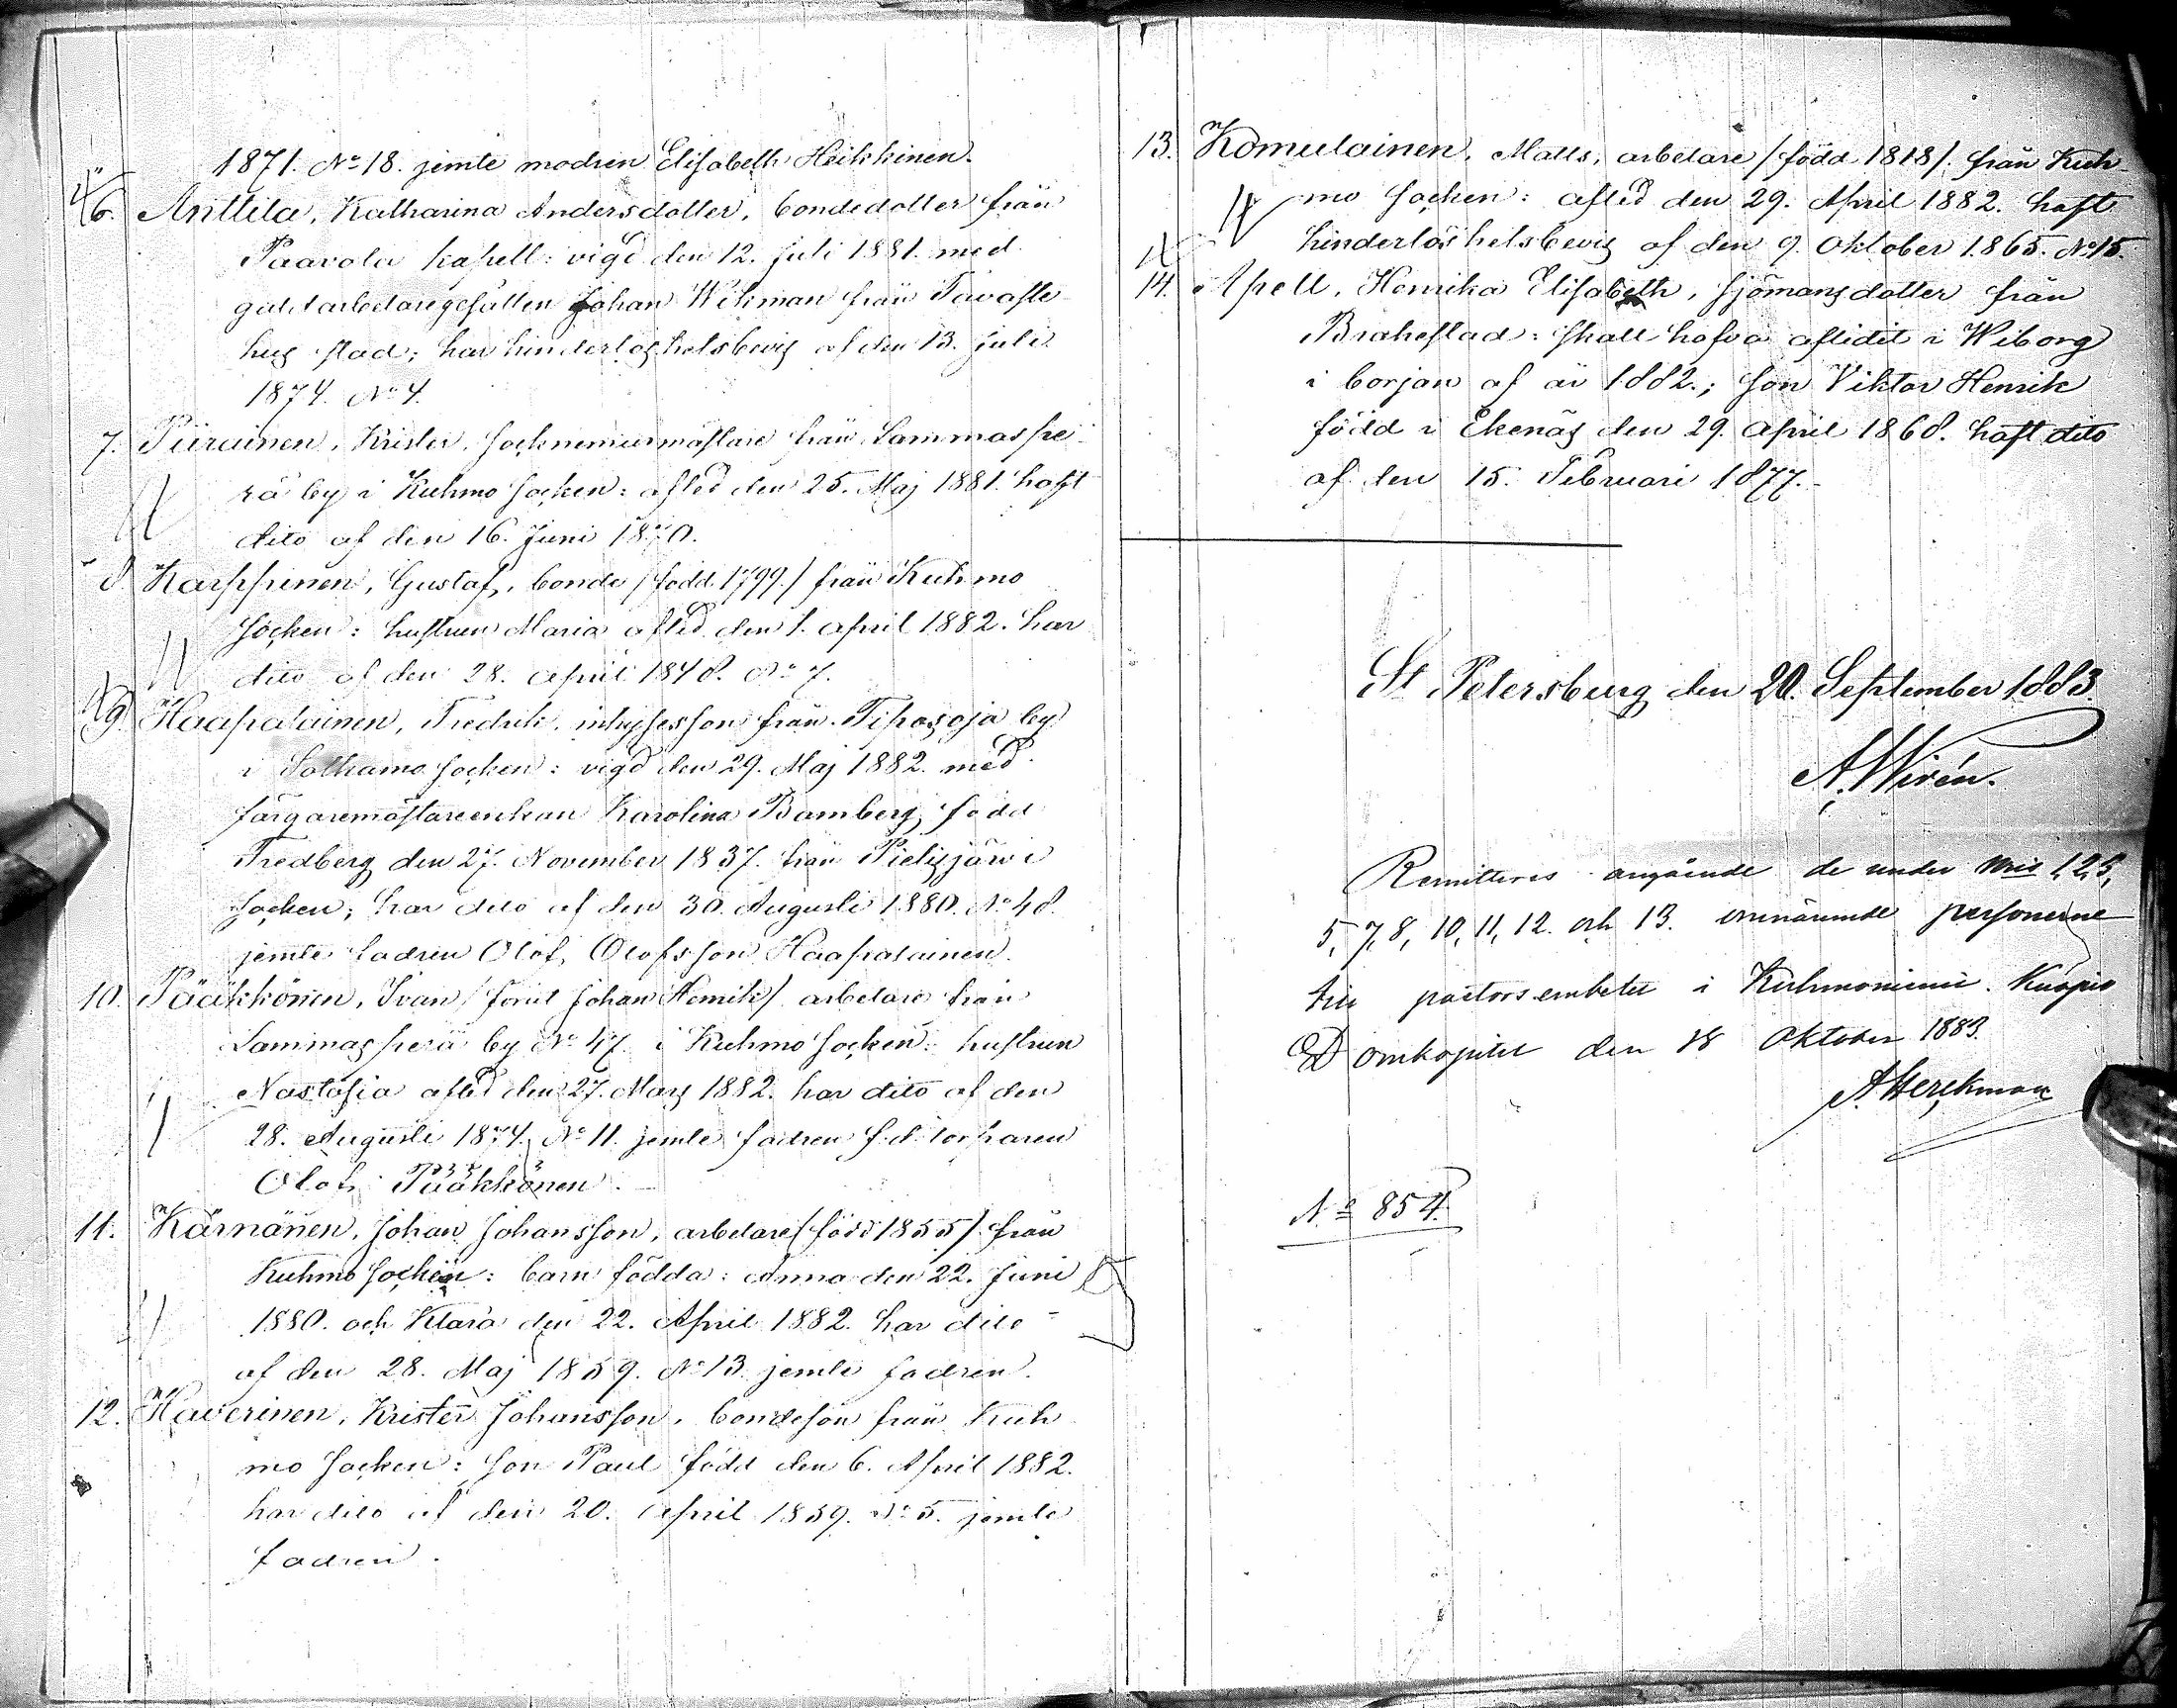 1871. No 18. jemte modren Elisabeth Heikkinen.
6. Anttila, Katharina Andersdotter, bondedotter från
Paavola kapell: vigd den 12. Juli 1881. med
guldarbetaregesällen Johan Wikman från Tavaste
hus stad; har hinderlöshetsbevis af den 13. Juli
1874. No 4.
7. Piirainen, Krister, sockneskomästare från Lammaspe-
rä by i Kuhmo socken: afled den 25. Maj 1881. haft
dito af den 16. Juni 1870.
8. Karppinen, Gustaf, bonde /född 1799./ från Kuhmo
socken: hustrun Maria afled den 1. April 1882. har
dito af den 28. April 1848. No 7.
9. Haapalainen, Fredrik, inhysesson från Tipasoja by
i Sotkamo socken: vigd den 29. Maj 1882. med
färgaremästareenkan Karolina Bamberg, född
Fredberg den 27. November 1837. från Pielisjärvi
socken; har dito af den 30. Augusti 1880. No 48.
jemte fadren Olof Olofsson Haapalainen.
10. Pääkkönen, Ivan /förut Johan Henrik/ arbetare från
Lammasperä by No 47. i Kuhmo socken: hustrun
Nastasia afled den 27. Mars 1882. har dito af den
28. Augusti 1874. No 11. jemte fadren f.d. torparen
Olof Pääkkönen.
11. Kärnänen, Johan Johansson, arbetare /född 1855/ från
Kuhmo socken: barn födda: Anna den 22. Juni
1880. och Klara den 22. April 1882. har dito
af den 28. Maj 1859. No 13. jemte fadren.
12. Haverinen, Krister Johansson, bondeson från Kuh
mo socken: son Paul född den 6. April 1882.
har dito af den 20. April 1859. No 5. jemte
fadren.
13. Komulainen, Matts, arbetare /född 1818/. från Kuh-
mo socken: afled den 29. April 1882. haft
hinderlöshetsbevis af den 9. Oktober 1865. No 15.
14. Apell, Henrika Elisabeth, sjömansdotter från
Brahestad: skall hafva aflidit i Wiborg
i början af år 1882.; son Viktor Henrik
född i Ekenäs den 29. April 1868. haft dito
af den 15. Februari 1877.
St Petersburg den 20. September 1883.
A. Wirén.
Remitteras angående de under Nris 1, 2, 3,
5, 7, 8, 10, 11, 12. och 13. omnämnde personerne
till pastorsembetet i Kuhmoniemi. Kuopio
Domkapitel den 18 Oktober 1883.
A. Herckman
No 854.